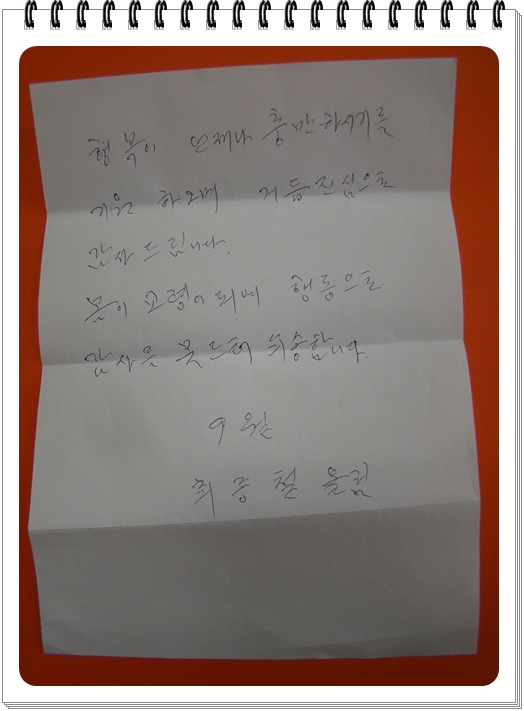 행복이 언제나 충만하시기를
기원 하오며 거듭진심으로
감사 드립니다.
몸이 고령이 되매 행동으로
감사를 못드려 죄송합니다.
9월
최종철 올림